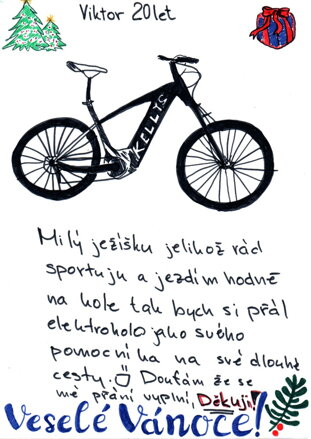 Viktor 20let
KELLYS
Milý ježíšku jelikož rád
sportuju a jezdím hodně
na kole tak bych si přál
elektrokolo jako svého
pomocníka na své dlouhé
cesty. Doufám že se
mé přání vyplní, Děkuji!
Veselé Vánoce!